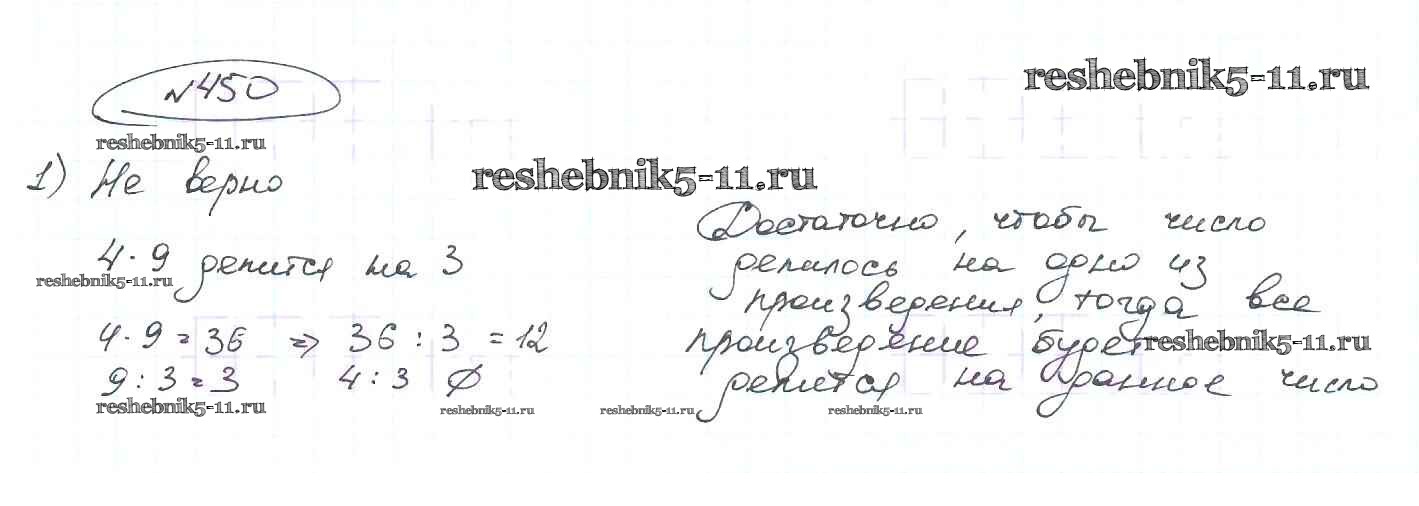 №450
reshebnik5-11.ru
reshebnik5-11.ru
1) Не верно
reshebnik5-11.ru
4·9 делится на 3
reshebnik5-11.ru
4·9=36 => 36:3 =12
9:3=3 4:3 ∅
reshebnik5-11.ru
Достаточно, чтобы число
делилось на одно из
произведения, тогда все
произведение будет
reshebnik5-11.ru
делится на данное число
reshebnik5-11.ru
reshebnik5-11.ru
reshebnik5-11.ru